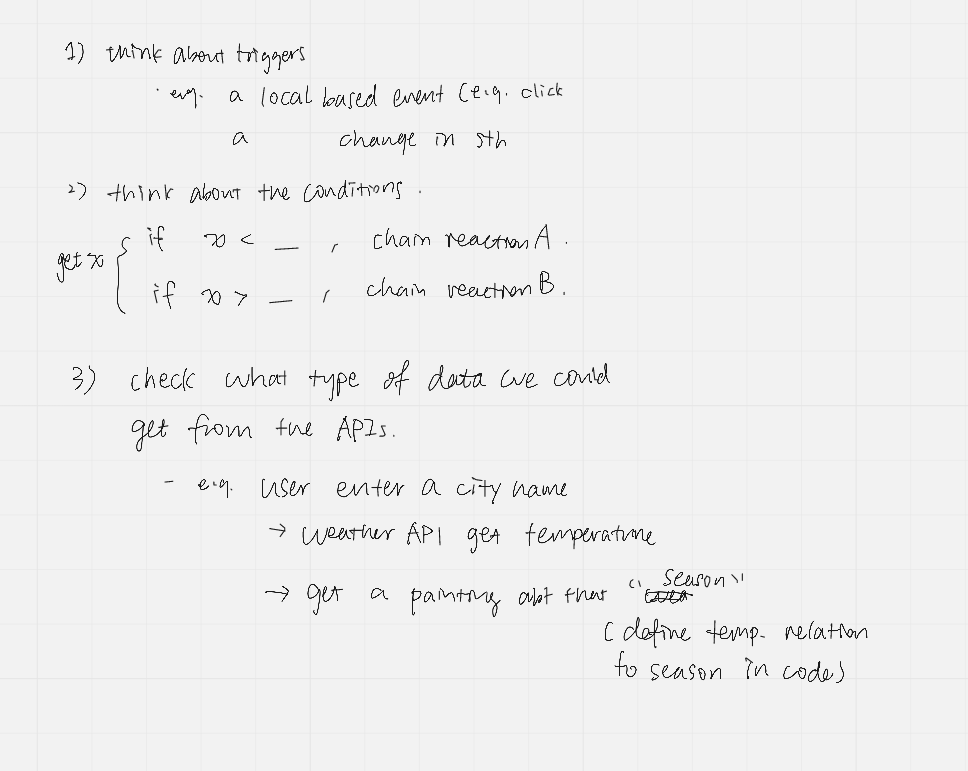 1) think about triggers
· e.g. a local based event (e.g. click
a change in sth
2) think about the conditions.
get x { if x < __ , chain reaction A.
if x > __ , chain reaction B.
3) check what type of data we could
get from the APIs.
- e.g. user enter a city name
→ weather API get temperature
→ get a painting abt that "season"
(define temp. relation
to season in code)